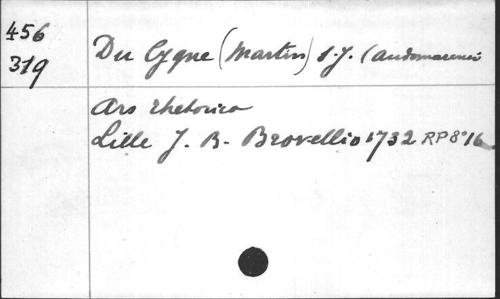 456
319
Du Cygne (Martin) S.J. (Audomarensi
Ars rhetorica
Lille J. B. Brovellio 1732 RP 8° 16